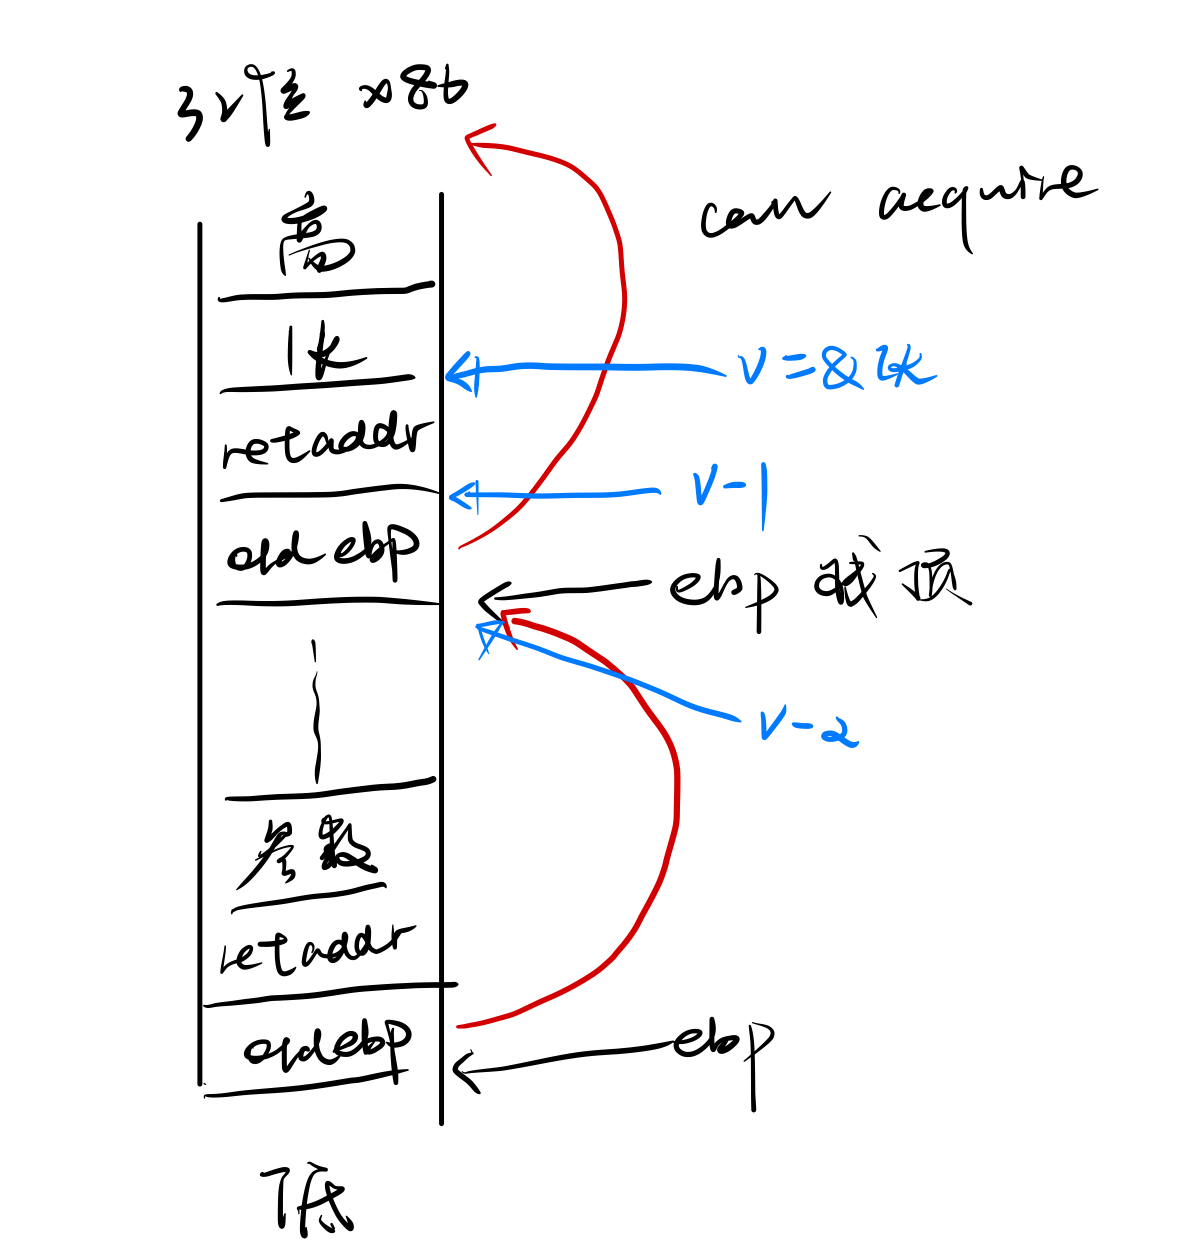 32位 x86
call acquire
高
lk
v=&lk
retaddr
v-1
old ebp
ebp 栈顶
v-2
参数
retaddr
old ebp
ebp
低